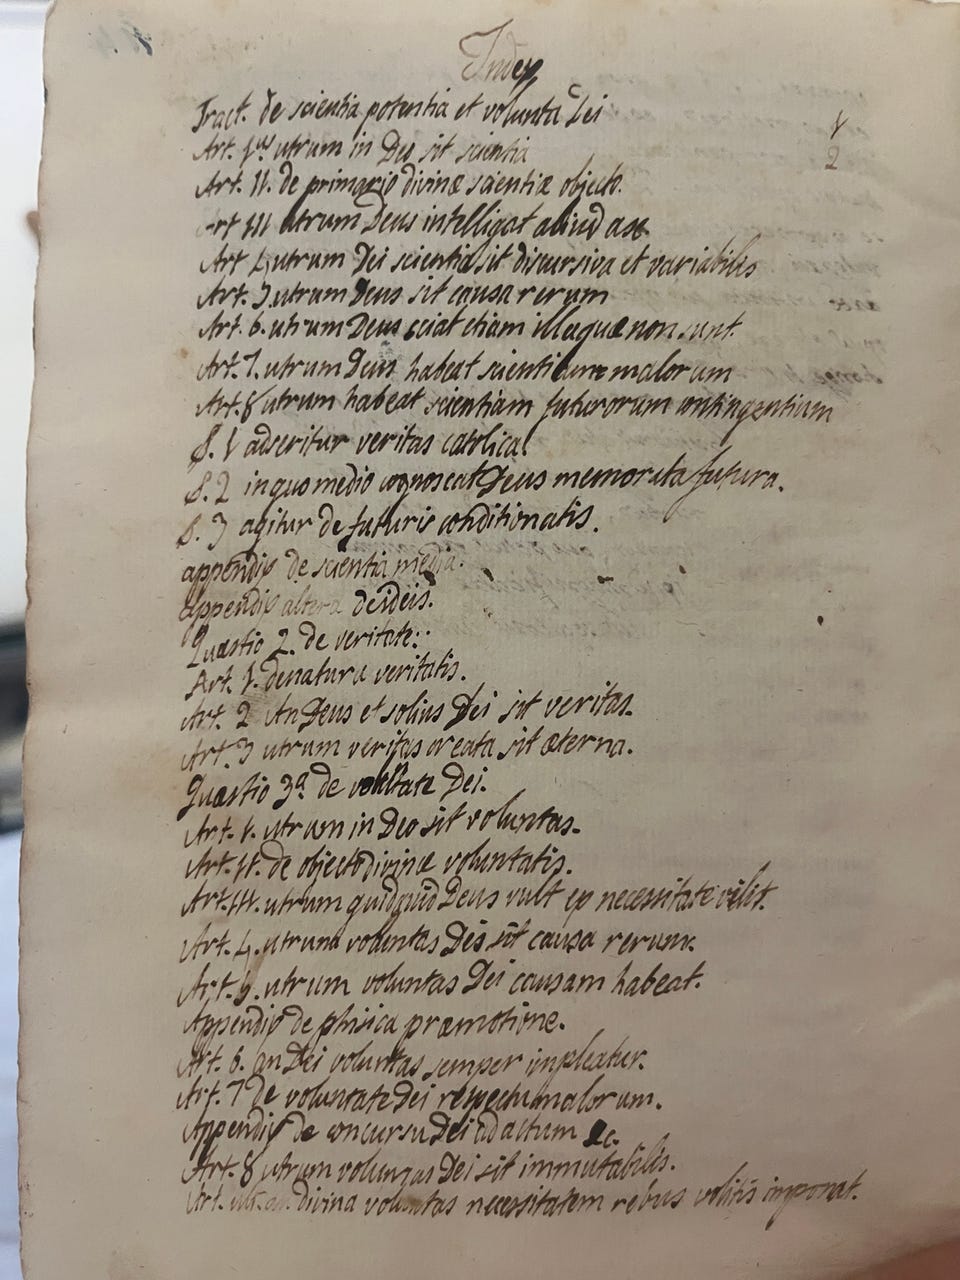 Index
Tract. de scientia potentia et volunta Dei 1
Art. 1us utrum in Deo sit scientia 2
Art. II. de primario divinæ scientiæ objecto.
Art III utrum Deus intelligat aliud a se
Art 4 utrum Dei scientia sit discursiva et variabilis
Art. 5. utrum Deus sit causa rerum
Art. 6. utrum Deus sciat etiam illa quæ non sunt
Art. 7. utrum Deus habeat scientiam malorum
Art. 8 utrum habeat scientiam futurorum contingentium
§. 1 adseritur veritas catolica
§. 2 in quo medio cognoscat Deus memorata futura.
§. 3 agitur de futuris conditionatis.
appendix de scientia media.
appendix altera de ideis.
Quæstio 2. de veritate:.
Art. 1. de natura veritatis.
Art. 2 An Deus et solius Dei sit veritas.
Art. 3 utrum veritas creata sit æterna.
Quæstio 3a. de voltate Dei.
Art. 1. utrum in Deo sit voluntas.
Art. II. de objecto divinæ voluntatis.
Art. III. utrum quidquid Deus vult ex necessitate velit.
Art. 4. utrum voluntas Dei sit causa rerum.
Art. 5. utrum voluntas Dei causam habeat.
Appendix de phisica præmotione.
Art. 6. an Dei voluntas semper impleatur.
Art. 7 de voluntate Dei respectu malorum.
Appendix de concursu Dei ad actum &c.
Art. 8 utrum voluntas Dei sit immutabilis.
Art. ult. an divina voluntas necessitatem rebus volitis imponat.